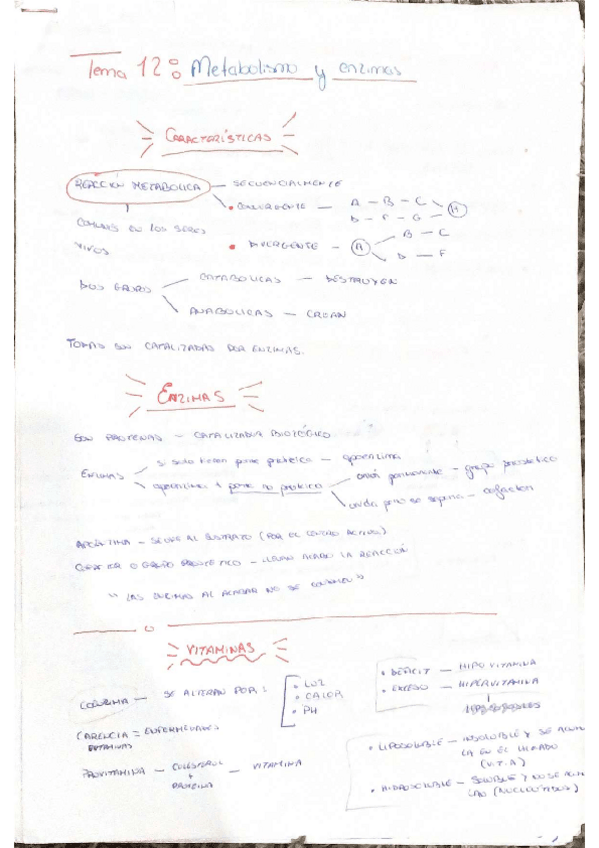 Tema 12: Metabolismo y enzimas
CARACTERÍSTICAS
REACCIÓN METABOLICA — SECUENCIALMENTE
• CONVERGENTE — A — B — C
D — F — G
H
COMUNES EN LOS SERES
VIVOS
• DIVERGENTE — A
B — C
D — F
DOS GRUPOS
CATABOLICAS — DESTRUYEN
ANABOLICAS — CREAN
TODAS SON CATALIZADAS POR ENZIMAS.
ENZIMAS
SON PROTEINAS — CATALIZADOR BIOLÓGICO
ENZIMAS
si solo tienen parte proteica — apoenzima
apoenzima + parte no proteica
unión permanente — grupo prostético
unida pero se separa — cofactor
APOENZIMA — SE UNE AL SUSTRATO (POR EL CENTRO ACTIVO)
COFACTOR O GRUPO PROSTÉTICO — LLEVAN ACABO LA REACCIÓN
" LAS ENZIMAS AL ACABAR NO SE CONSUMEN "
VITAMINAS
COENZIMA — SE ALTERAN POR:
• LUZ
• CALOR
• PH
• DÉFICIT — HIPOVITAMINA
• EXCESO — HIPERVITAMINA
CARENCIA = ENFERMEDADES
PROVITAMINA — COLESTEROL
+
PROTEINA
— VITAMINA
• LIPOSOLUBLE — INSOLUBLE Y SE ACUMU
LA EN EL HIGADO
(VIT.A)
• HIDROSOLUBLE — SOLUBLE Y NO SE ACUMU
LAN